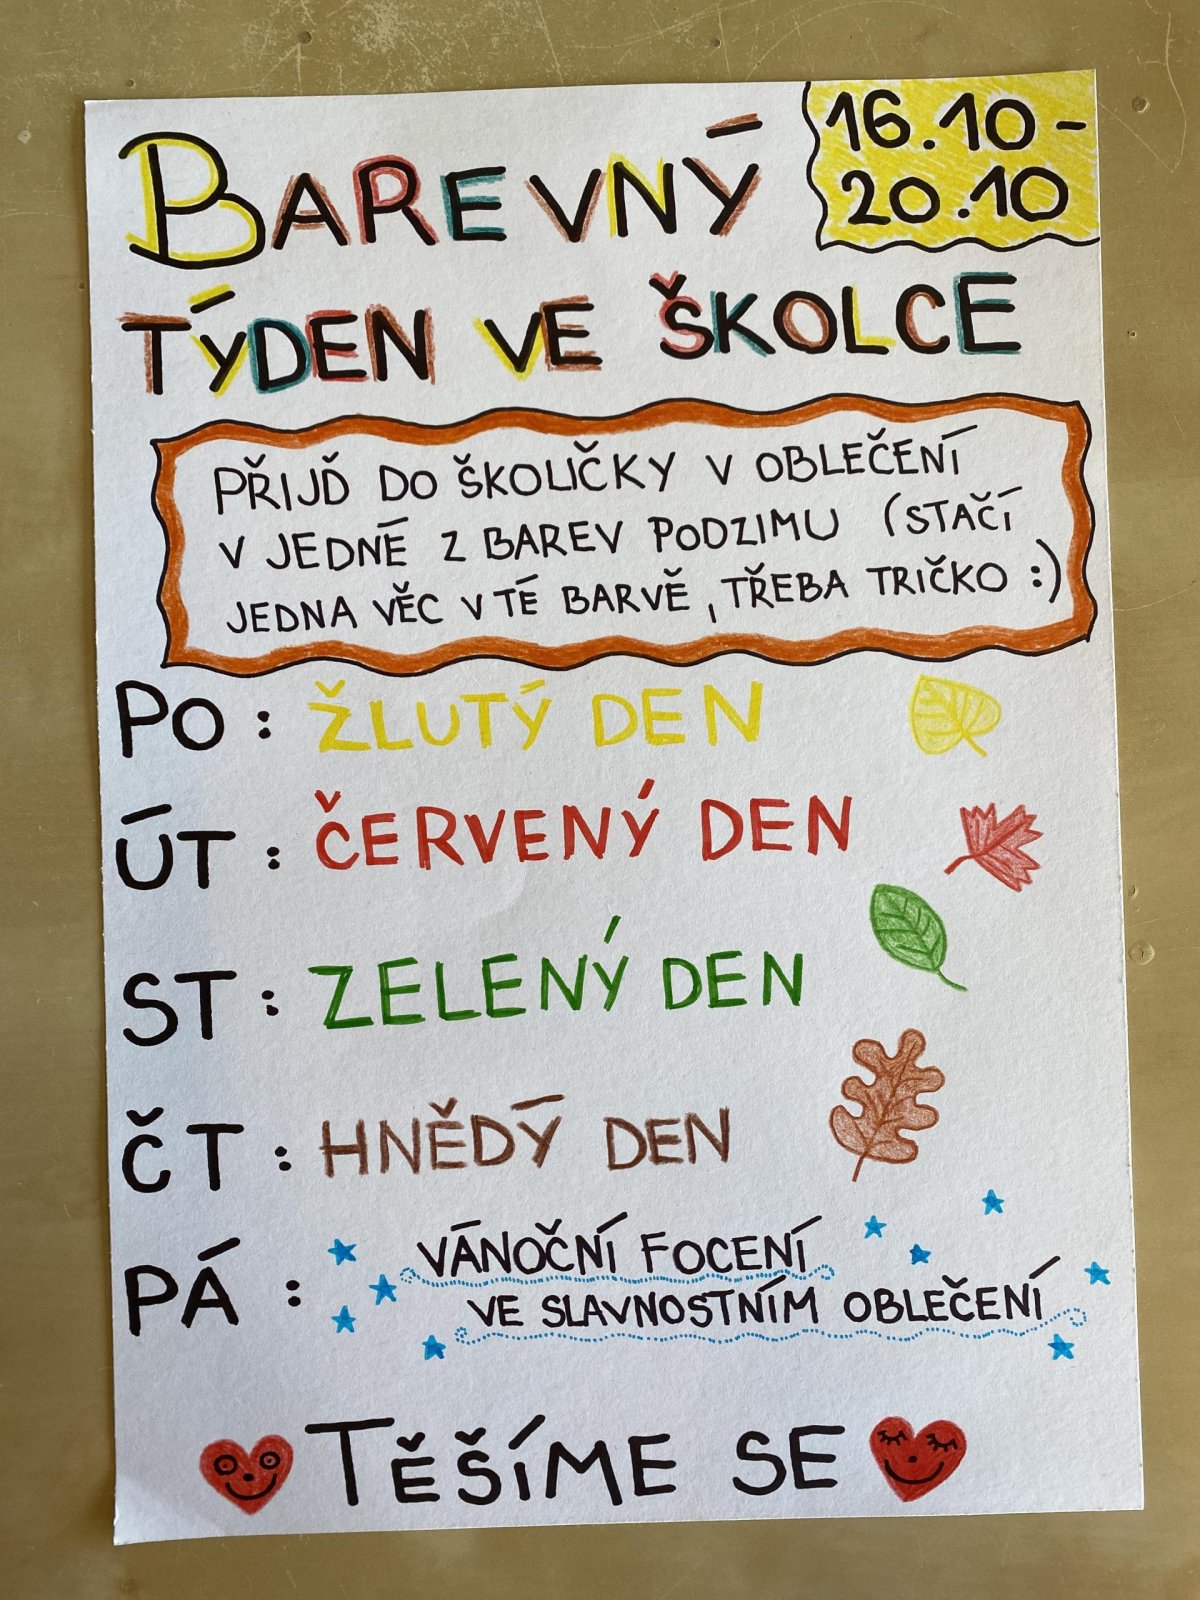 BAREVNÝ
16.10 -
20.10
TÝDEN VE ŠKOLCE
PŘIJĎ DO ŠKOLIČKY V OBLEČENÍ
V JEDNÉ Z BAREV PODZIMU (STAČÍ
JEDNA VĚC V TÉ BARVĚ, TŘEBA TRIČKO :)
PO : ŽLUTÝ DEN
ÚT : ČERVENÝ DEN
ST : ZELENÝ DEN
ČT : HNĚDÝ DEN
PÁ : VÁNOČNÍ FOCENÍ
VE SLAVNOSTNÍM OBLEČENÍ
TĚŠÍME SE